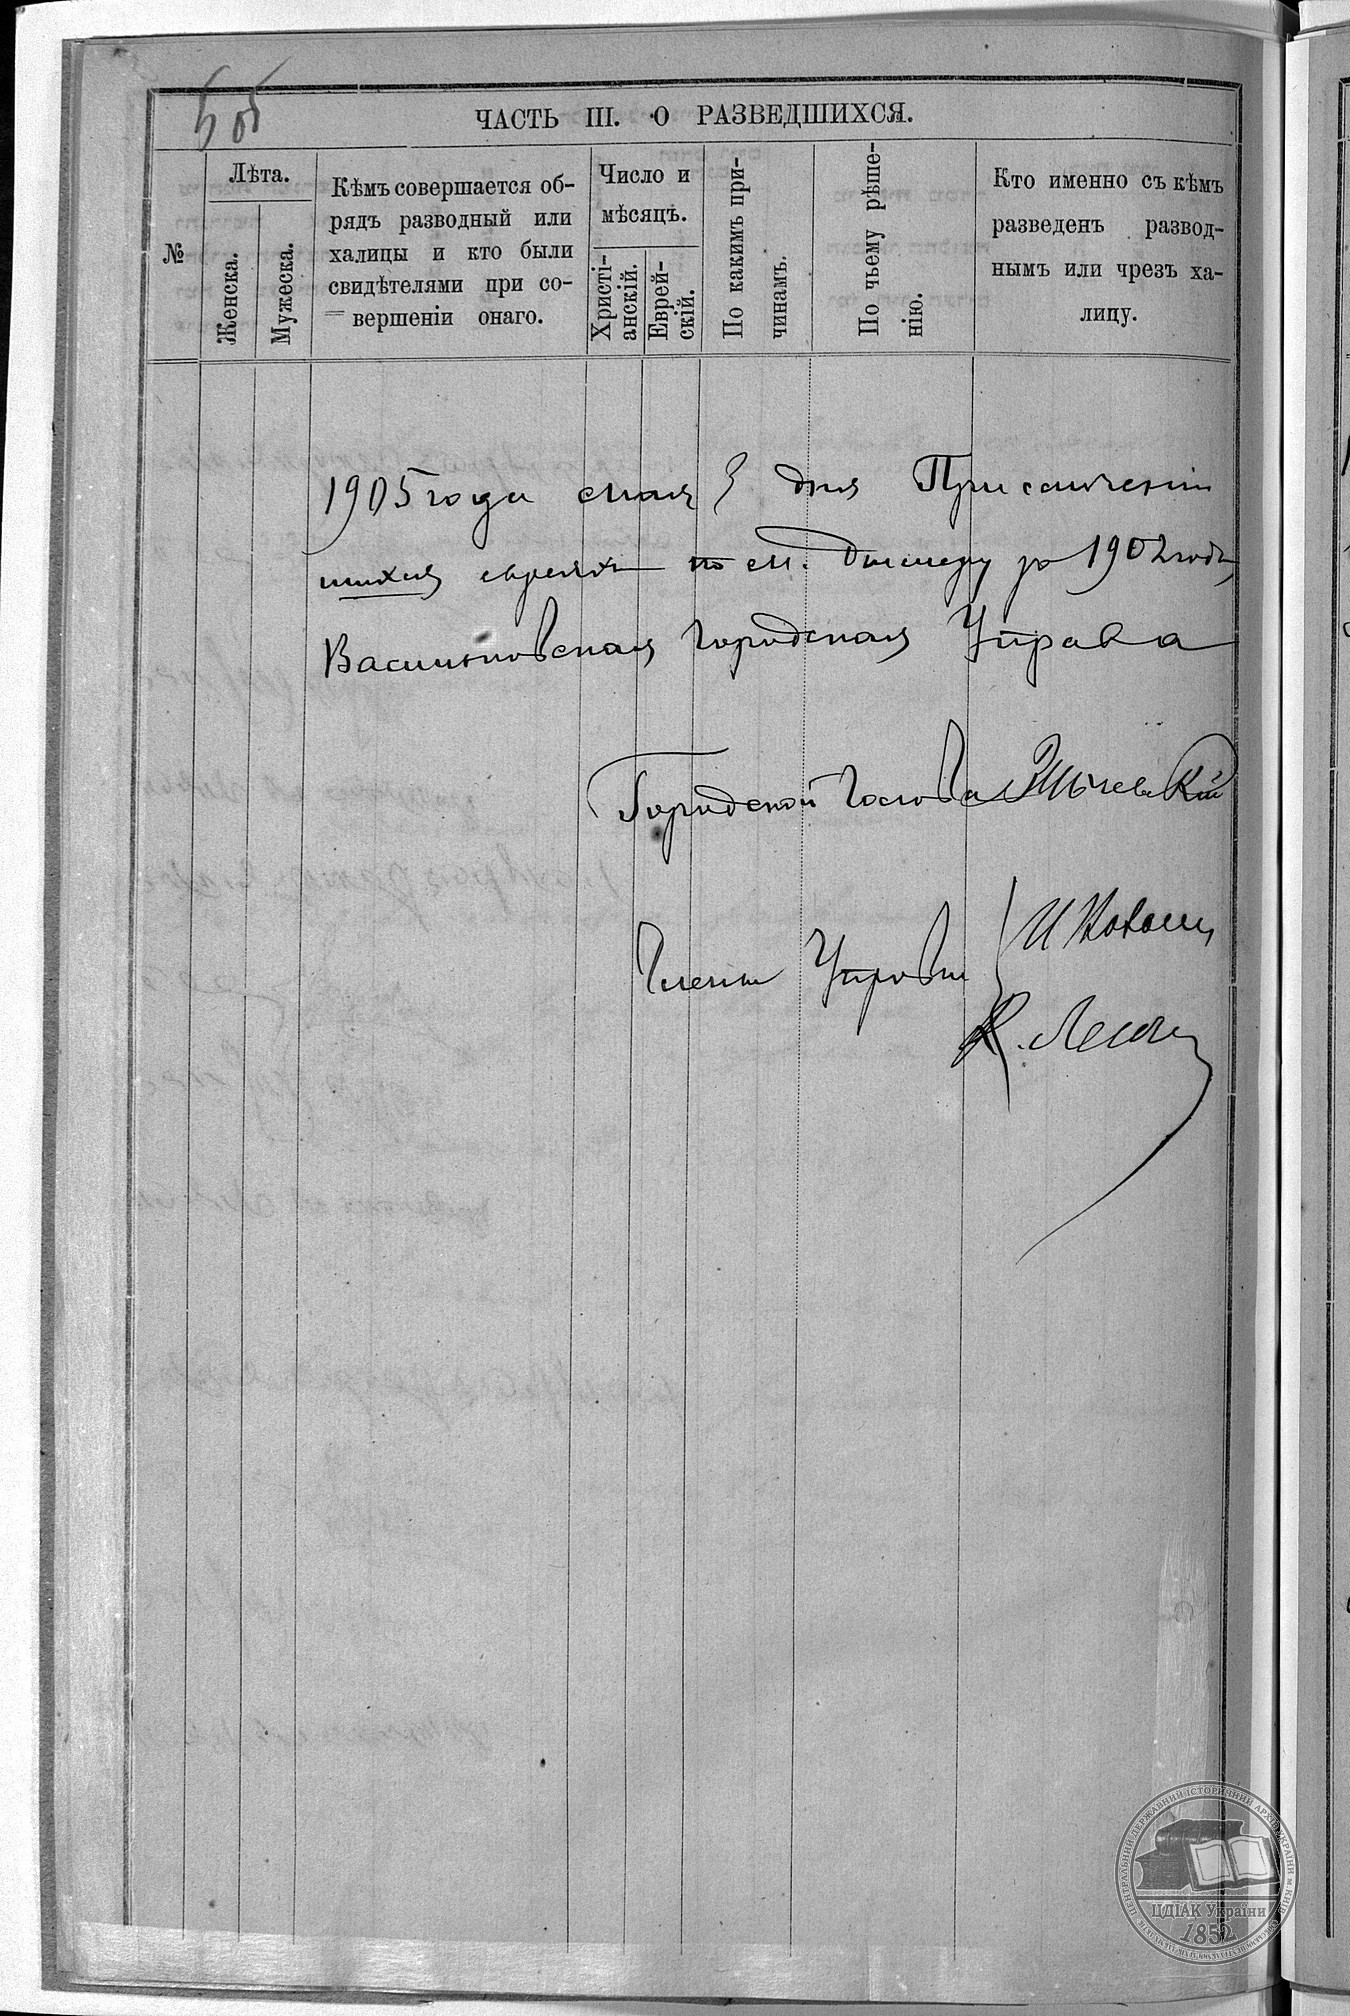 ЧАСТЬ III. О РАЗВЕДШИХСЯ.
№
Лѣта.
Женска.
Мужеска.
Кѣмъ совершается об-
рядъ разводный или
халицы и кто были
свидѣтелями при со-
вершеніи онаго.
Число и
мѣсяцъ.
Христі-
анскій.
Еврей-
скій.
По какимъ при-
чинамъ.
По чьему рѣше-
нію.
Кто именно съ кѣмъ
разведенъ развод-
нымъ или чрезъ ха-
лицу.
1905 года мая дня При
евреяхъ по м. за 1902 годъ
Васильковская Городская Управа
Городской Голова
Члены Управы
ЦЕНТРАЛЬНИЙ ДЕРЖАВНИЙ ІСТОРИЧНИЙ АРХІВ УКРАЇНИ м. КИЇВ
ЦДІАК України
1852